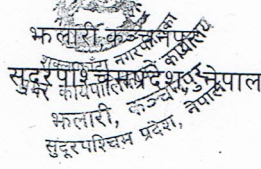 झलारी कञ्चनपुर
सुदूरपश्चिमप्रदेश, नेपाल
नगरपालिका
नगर कार्यपालिकाको कार्यालय
झलारी, कञ्चनपुर
सुदूरपश्चिम प्रदेश, नेपाल